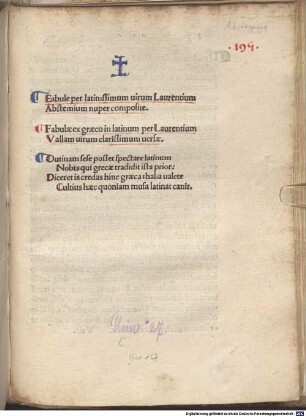 ·194·
¶ Fabule per latinissimum uirum Laurentium
Abstemium nuper composite.
¶ Fabulæ ex græco in latinum per Laurentium
Vallam uirum clarissimum uersæ.
¶ Outinam sese posset spectare latinum
Nobis qui grecæ tradidit ista prior:
Diceret is credas hinc græca thalia ualete
Cultius hæc quoniam musa latinat canit.